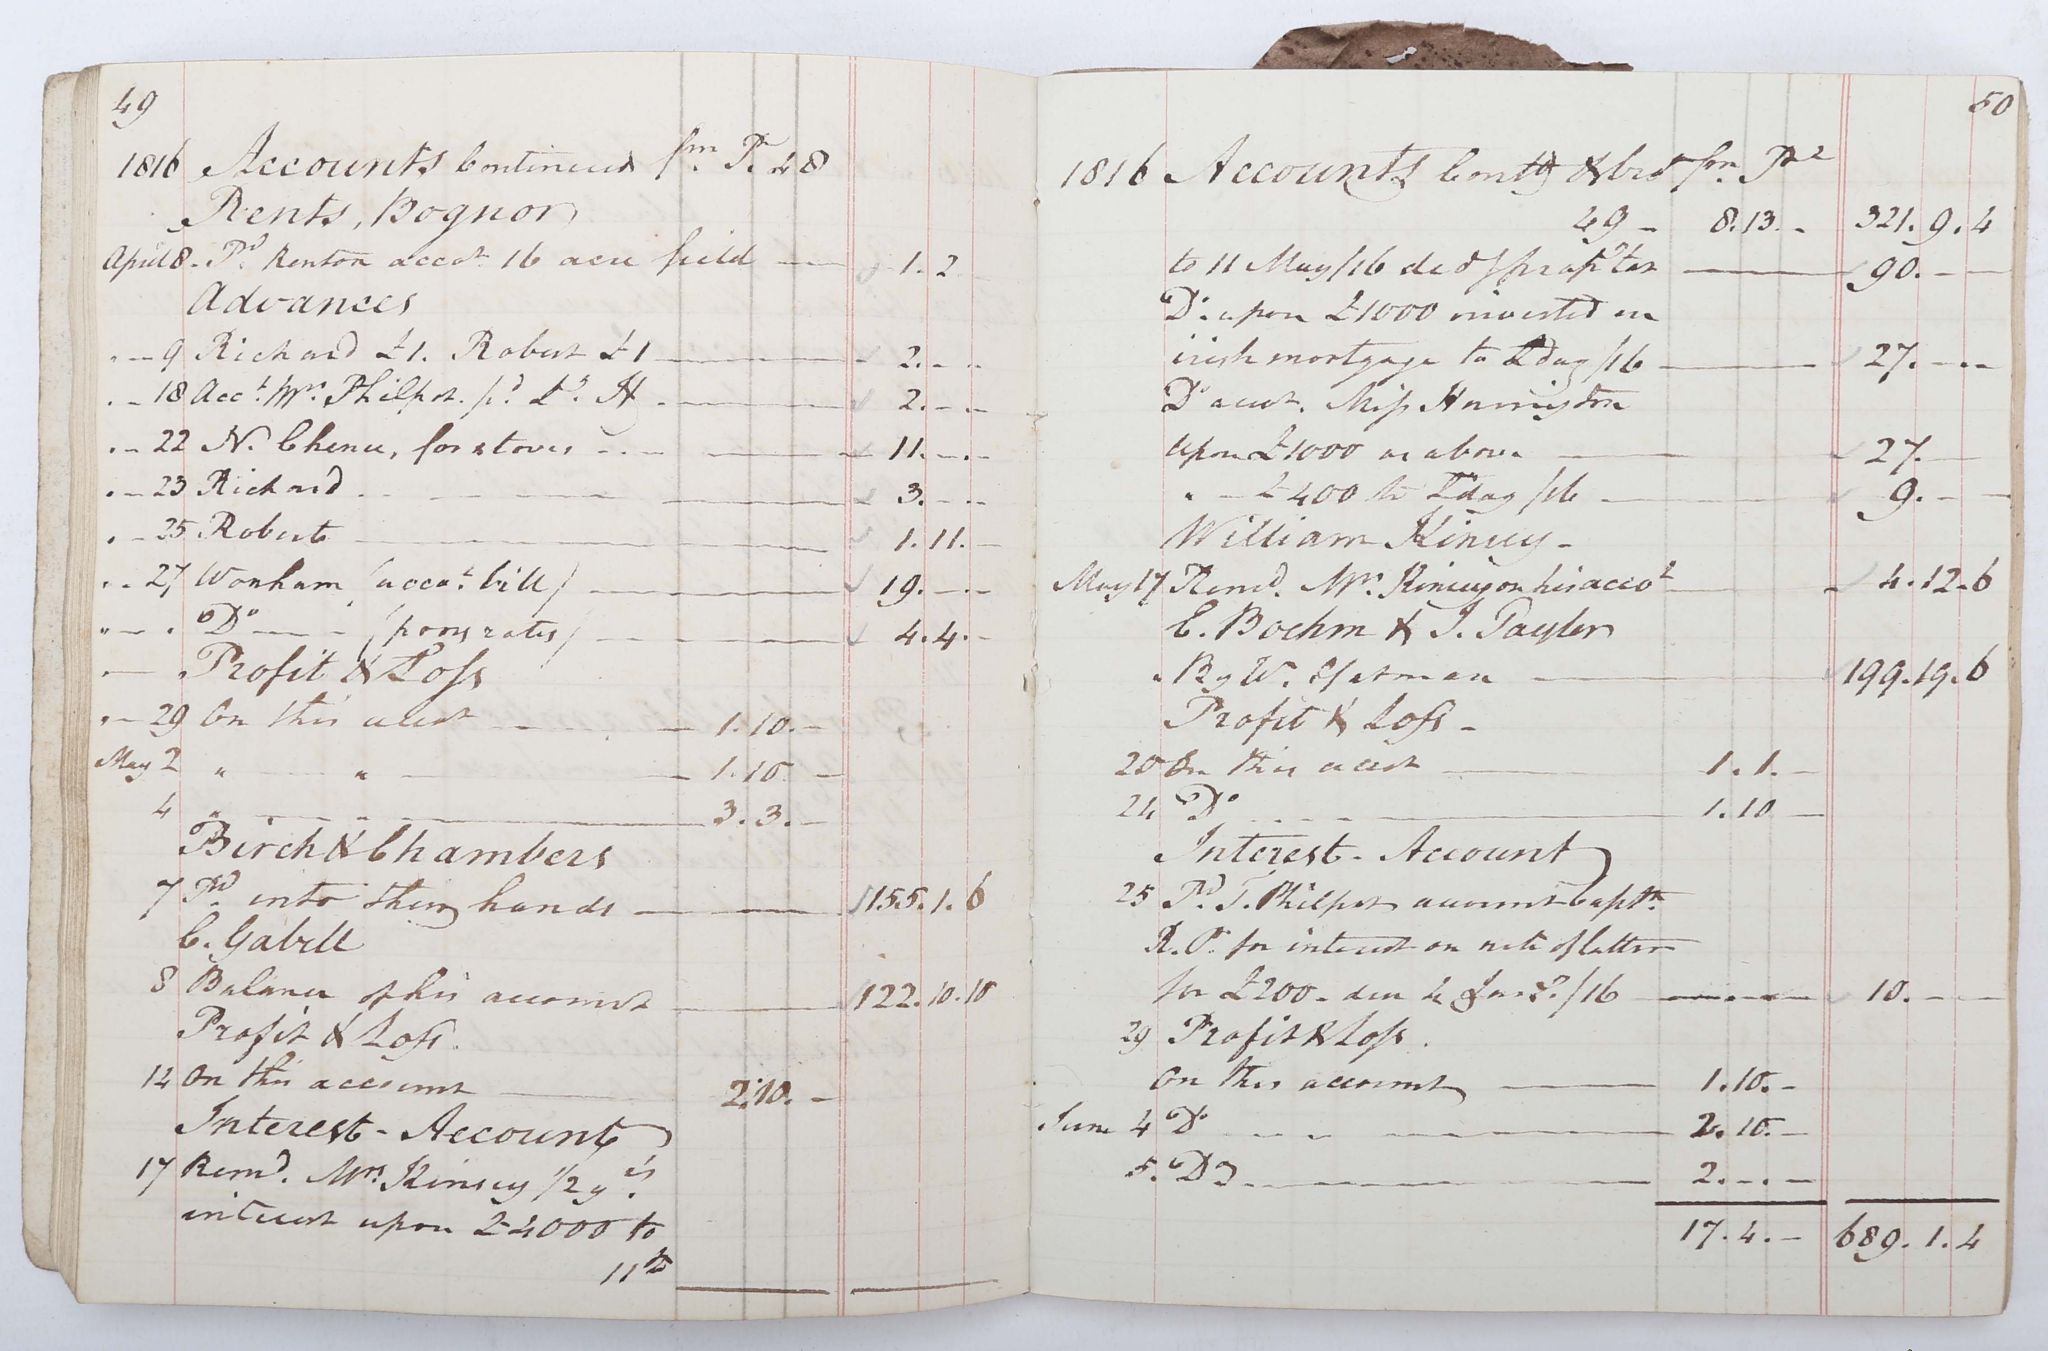 49
1816 Accounts Continued fm P. 48
Rents, Bognor
April 8. Pd. Renton accot. 16 acre field — 1. 2
Advances
" — 9 Richard £1. Robert £1 — 2. — ..
. — 18 Acct. Mrs. Philpot. pd. H — 2. — ..
. — 22 N. Chene, for stoves — 11. — ..
. — 23 Richard — 3. — ..
. — 25 Robert — 1. 11. —
. — 27 Wonham (accot. bill) — 19. — ..
" — . Do — (poors rates) — 4. 4. —
— Profit & Loss
" — 29 On this acct — 1. 10. —
May 2 " — " — 1. 10 —
4 " — " — 3. 3. —
Birch & Chambers
7 Pd. into their hands — 155. 1. 6
C. Gabell
8 Balance of his account — 122. 10. 10
Profit & Loss.
14 On this account — 2. 10. —
Interest - Account
17 Remd. Mrs. Kinsey 1/2 yrs.
interest upon £4000 to
11th
50
1816 Accounts Contd & brot fm. Pa
49 — 8. 13. — 321. 9. 4
to 11 May /16 ded. prop. tax — 90. — —
Do. upon £1000 invested in
irish mortgage to Lday /16 — 27. — ..
Do accot. Miss Harrington
upon £1000 as above — 27. —
" — £400 to Lday /16 — 9. — —
William Kinsey —
May 17 Remd. Mrs. Kinsey on his accot — 4. 12. 6
C. Boehm & J. Tayler
By W. — 199. 19. 6
Profit & Loss —
20 On this acct — 1. 1. —
24 Do — 1. 10 —
Interest - Account
25 Pd. T. Philpot account Captn.
R. P. for interest on note of latter
for £200. due 4 /16 — 10. — —
29 Profit & Loss.
On this account — 1. 10. —
June 4 Do — 2. 10. —
5. Do — 2. — . —
17. 4. — 689. 1. 4